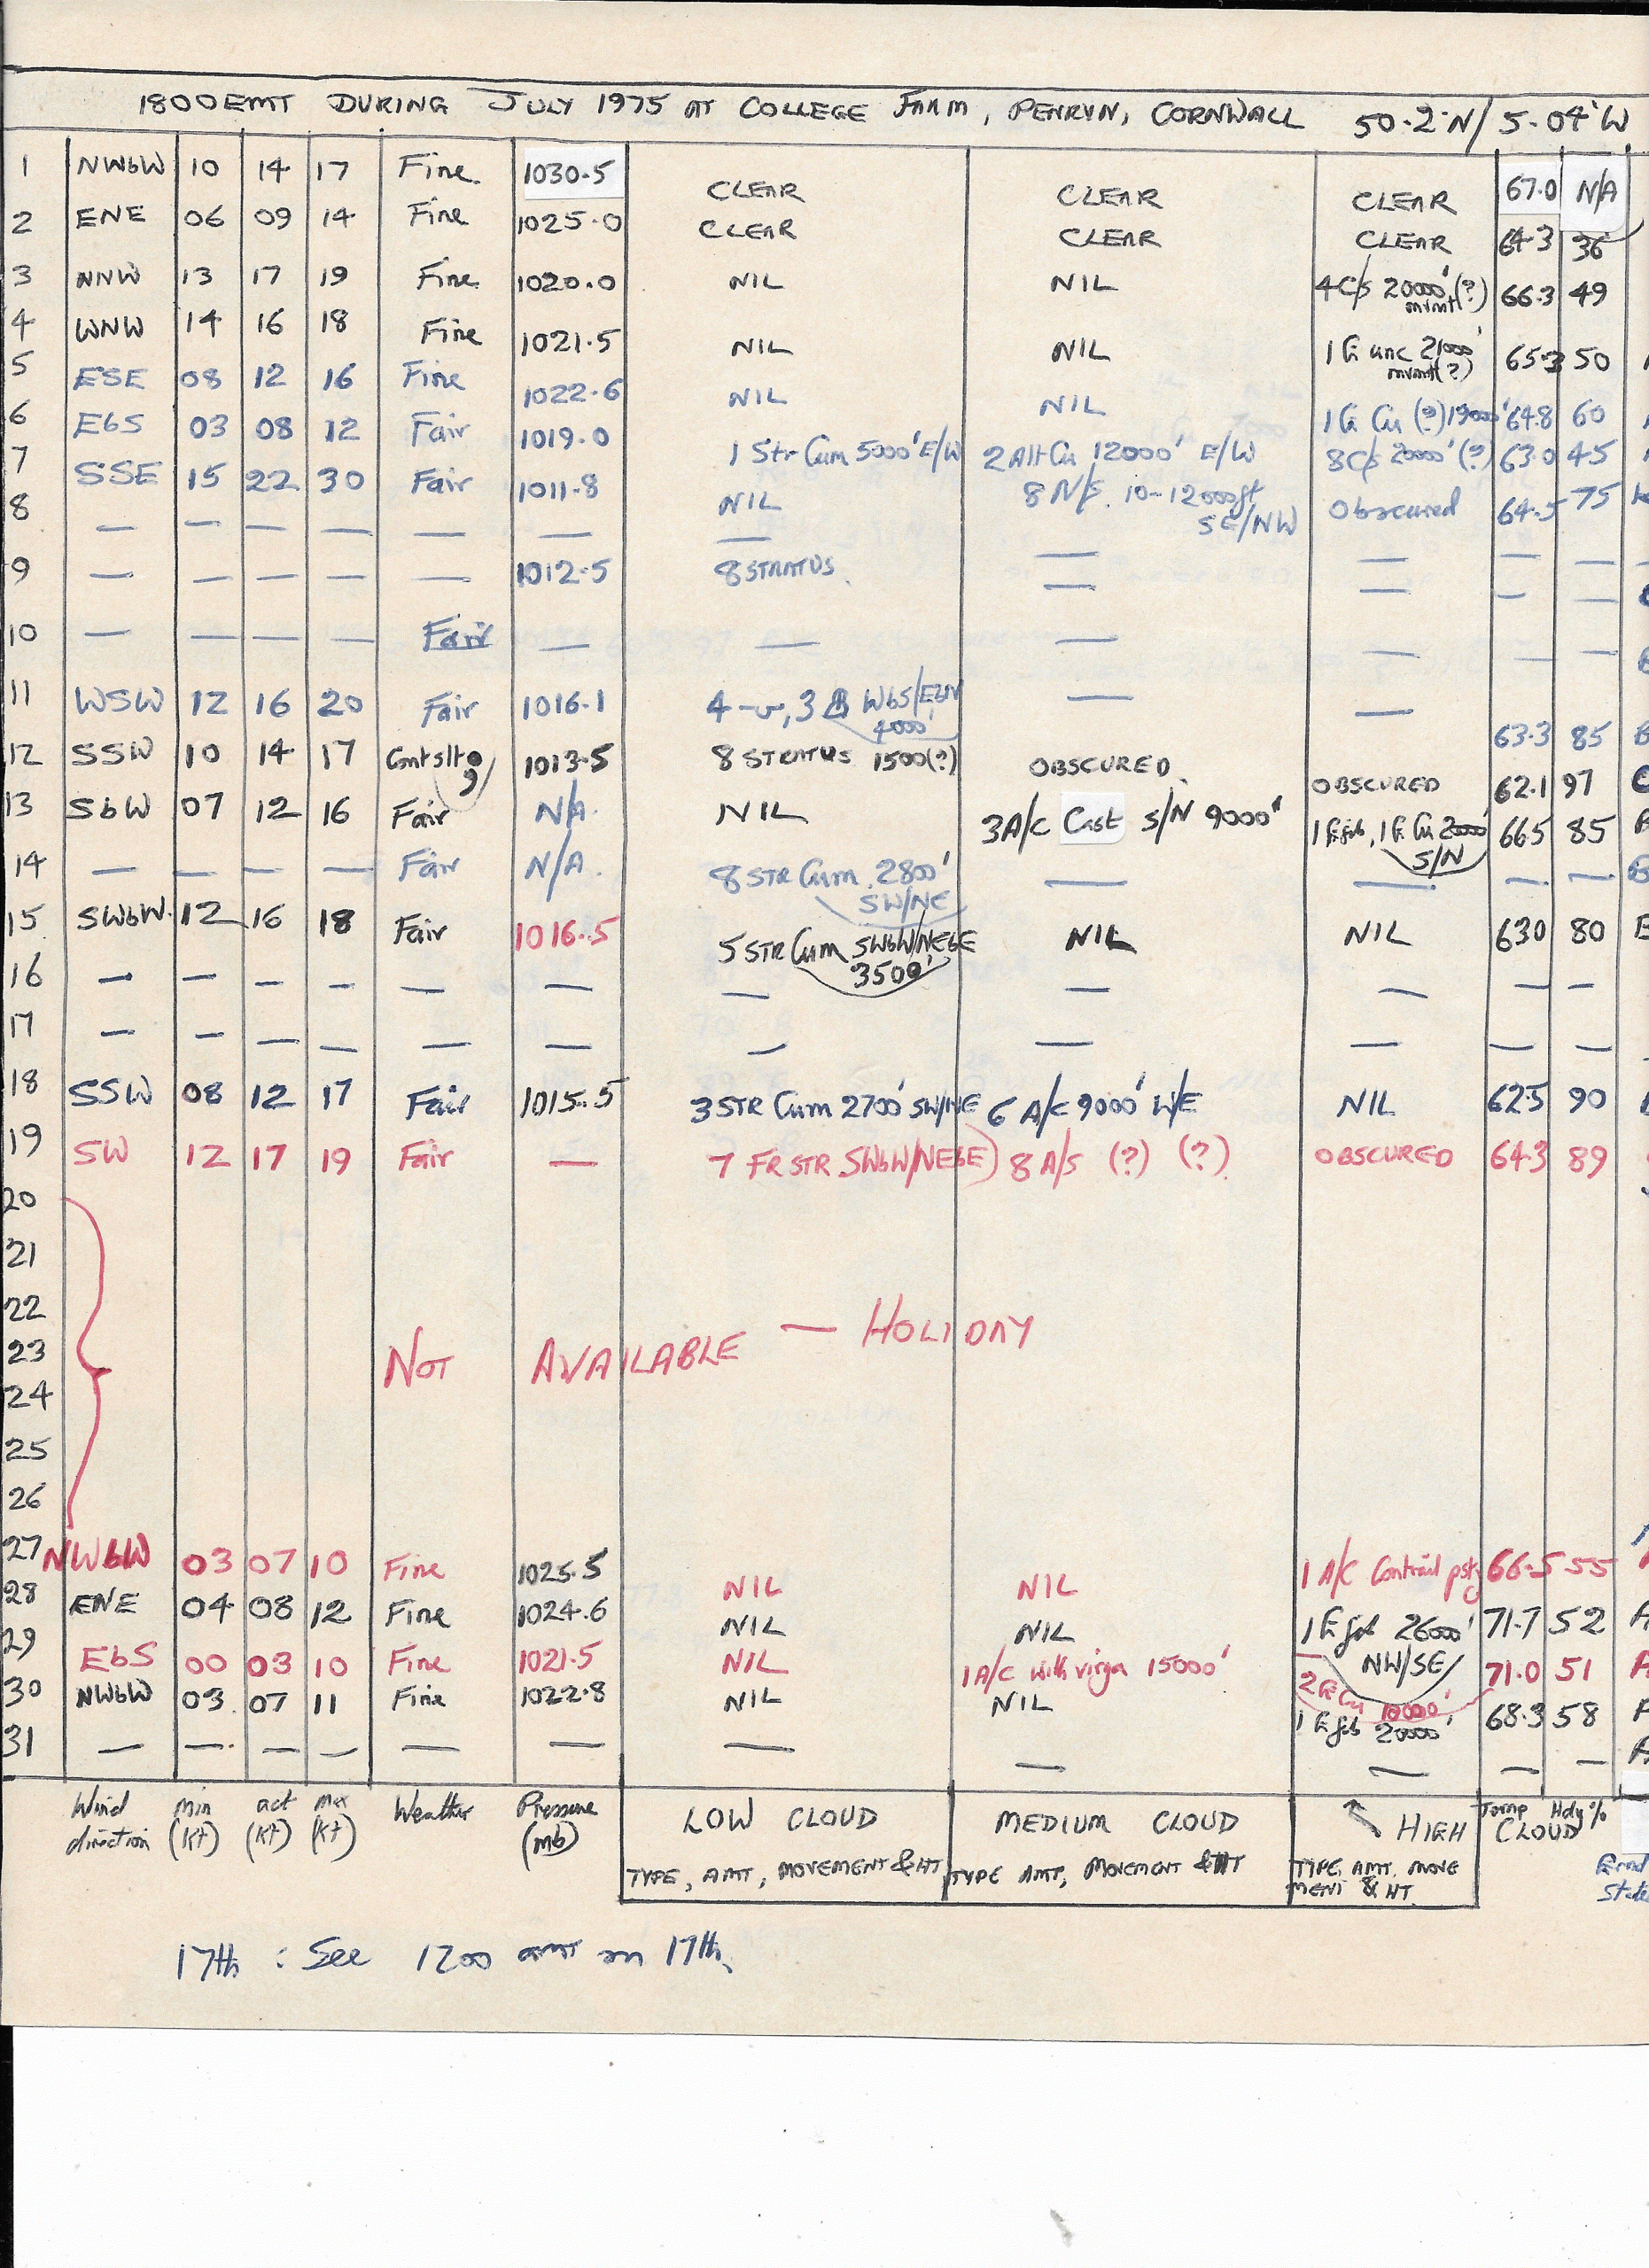 1800GMT DURING JULY 1975 AT COLLEGE FARM, PENRYN, CORNWALL 50·2·N/5·04'W
1 NWbW 10 14 17 Fine 1030·5 CLEAR CLEAR CLEAR 67.0 N/A
2 ENE 06 09 14 Fine 1025·0 CLEAR CLEAR CLEAR 64·3 36
3 NNW 13 17 19 Fine 1020.0 NIL NIL 4C/s 20000' (?) mvmt 66·3 49
4 WNW 14 16 18 Fine 1021·5 NIL NIL 1 unc 21000' mvmt(?) 65·3 50
5 ESE 08 12 16 Fine 1022·6 NIL NIL 1 Cu (?) 19000' 64.8 60
6 EbS 03 08 12 Fair 1019.0 1 Str Cum 5000' E/W 2 Alt Cu 12000' E/W 8C/s 20000' (?) 63.0 45
7 SSE 15 22 30 Fair 1011·8 NIL 8 N/s. 10-12000ft SE/NW Obscured 64.5 75
8 — — — — — — — — — — —
9 — — — — — 1012·5 8 STRATUS — — — —
10 — — — — Fair — — — — — —
11 WSW 12 16 20 Fair 1016·1 4 , 3 WbS/EbN 4000' — — 63·3 85
12 SSW 10 14 17 Cont slt 1013·5 8 STRATUS 1500(?) OBSCURED OBSCURED 62.1 97
13 SbW 07 12 16 Fair N/A. NIL 3A/c Cast S/N 9000' S/N 66.5 85
14 — — — — Fair N/A. 8 STR Cum. 2800' SW/NE — — — —
15 SWbW 12 16 18 Fair 1016.5 5 STR Cum SWbW/NEbE 3500' NIL NIL 630 80
16 — — — — — — — — — — —
17 — — — — — — — — — — —
18 SSW 08 12 17 Fair 1015.5 3 STR Cum 2700' SW/NE 6 A/c 9000' W/E NIL 62.5 90
19 SW 12 17 19 Fair — 7 FR STR. SWbW/NEbE) 8 A/s (?) (?) OBSCURED 64·3 89
20
21
22
23 NOT AVAILABLE — HOLIDAY
24
25
26
27 NWbW 03 07 10 Fine 1025·5 NIL NIL 1 A/C Contrail 66·5 55
28 ENE 04 08 12 Fine 1024.6 NIL NIL 1 26000' NW/SE 71.7 52
29 EbS 00 03 10 Fine 1021·5 NIL 1 A/c with virga 15000' 2 Cu 10000' 71.0 51
30 NWbW 03 07 11 Fine 1022·8 NIL NIL 1 20000' 68·3 58
31 — — — — — — — — — — —
Wind direction min (kt) act (kt) max (kt) Weather Pressure (mb) LOW CLOUD MEDIUM CLOUD HIGH CLOUD Temp Hdy%
TYPE, AMT, MOVEMENT & HT TYPE AMT, MOVEMENT & HT TYPE, AMT. MOVE MENT & HT.
17th : See 1200 GMT on 17th.